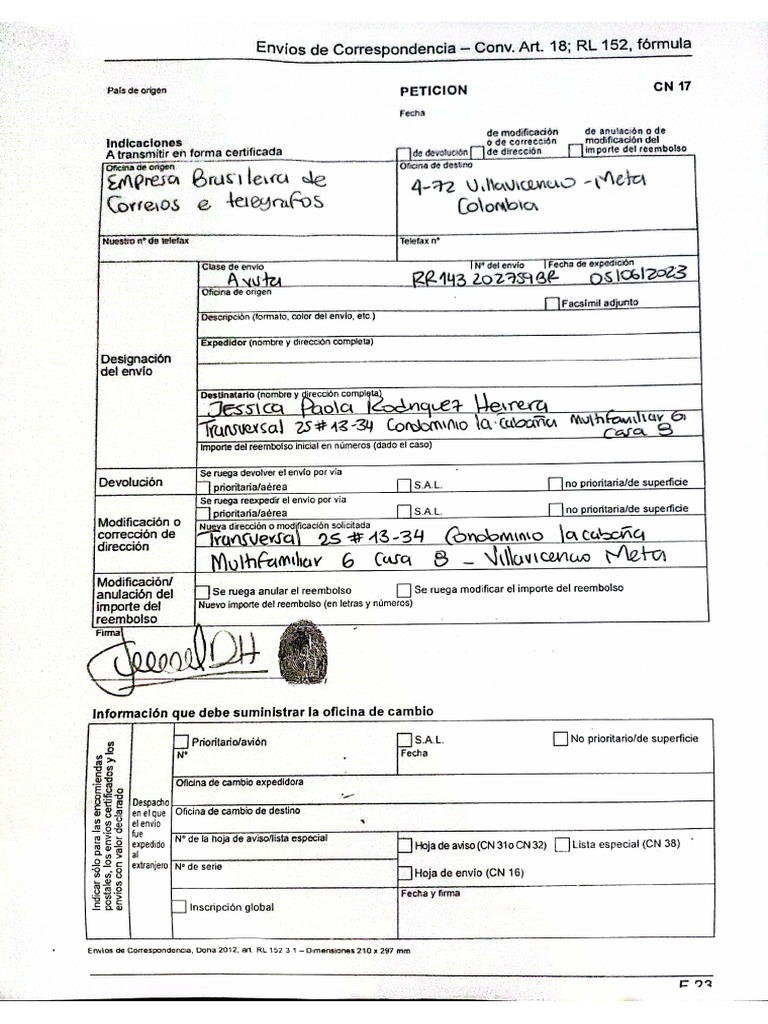 Envíos de Correspondencia – Conv. Art. 18; RL 152, fórmula
País de origen
PETICION
CN 17
Fecha
Indicaciones
A transmitir en forma certificada
de devolución
de modificación
o de corrección
de dirección
de anulación o de
modificación del
importe del reembolso
Oficina de origen
Empresa Brasileira de
Correios e telegrafos
Oficina de destino
4-72 Villavicencio - Meta
Colombia
Nuestro n° de telefax
Telefax n°
Designación
del envío
Clase de envío
N° del envío
Fecha de expedición
RR143202759BR
05/06/2023
Oficina de origen
Facsímil adjunto
Descripción (formato, color del envío, etc.)
Expedidor (nombre y dirección completa)
Destinatario (nombre y dirección completa)
Jessica Paola Rodriguez Herrera
Transversal 25 # 13-34 Condominio la cabaña Multifamiliar 6
casa 8
Importe del reembolso inicial en números (dado el caso)
Devolución
Se ruega devolver el envío por vía
prioritaria/aérea
S.A.L.
no prioritaria/de superficie
Modificación o
corrección de
dirección
Se ruega reexpedir el envío por vía
prioritaria/aérea
S.A.L.
no prioritaria/de superficie
Nueva dirección o modificación solicitada
Transversal 25 # 13-34 Condominio la cabaña
Multifamiliar 6 Casa 8 – Villavicencio Meta
Modificación/
anulación del
importe del
reembolso
Se ruega anular el reembolso
Se ruega modificar el importe del reembolso
Nuevo importe del reembolso (en letras y números)
Firma
Información que debe suministrar la oficina de cambio
Indicar sólo para las encomiendas
postales, los envíos certificados y los
envíos con valor declarado
Despacho
en el que
el envío
fue
expedido
al
extranjero
Prioritario/avión
S.A.L.
No prioritario/de superficie
N°
Fecha
Oficina de cambio expedidora
Oficina de cambio de destino
N° de la hoja de aviso/lista especial
Hoja de aviso (CN 31 o CN 32)
Lista especial (CN 38)
N° de serie
Hoja de envío (CN 16)
Inscripción global
Fecha y firma
Envíos de Correspondencia, Doha 2012, art. RL 152 3 1 – Dimensiones 210 x 297 mm